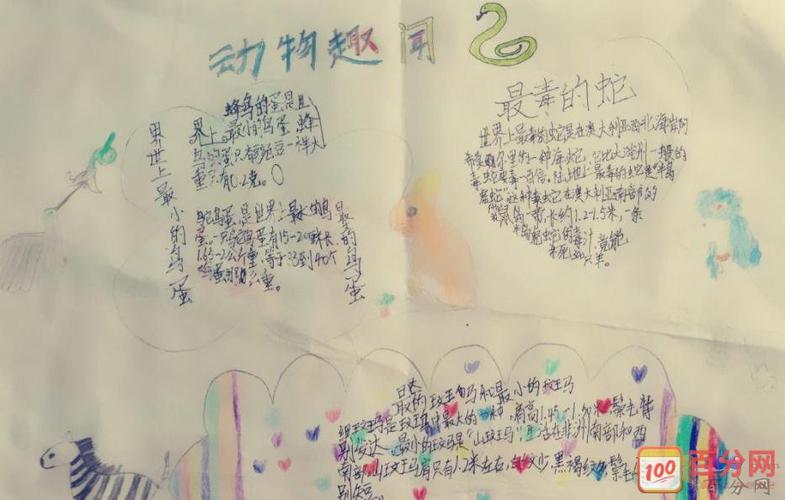 动物趣闻
世界上最小的鸟蛋
蜂鸟的蛋是世
界上最小的鸟蛋 蜂
鸟的蛋只有豌豆一样大
重只有0.2克。
最大的鸟蛋
鸵鸟蛋是世界上最大的鸟
蛋一只鸵鸟蛋有15-20厘米长
1.65-2公斤重,等于33到40个
鸡蛋的重。
最毒的蛇
世界上最毒的蛇是在澳大利亚西北海岸的
一种海蛇,它比大陆别一般的
毒蛇要毒一百倍。陆上最毒的蛇是"
蛇"这种毒蛇在澳大利亚南部的
一带,长约1.2-1.5米,一条
蛇的毒汁,竟能
毒死300只羊。
最大的斑马和最小的斑马
细斑马是斑马中最大的一种,肩高1.45-1.60米 鬃毛
别发达,最小的斑马是"山斑马"生活在非洲南部和西
南部,山斑马肩只有1.2米左右,黑褐纹
别短
100
百分网
百分网